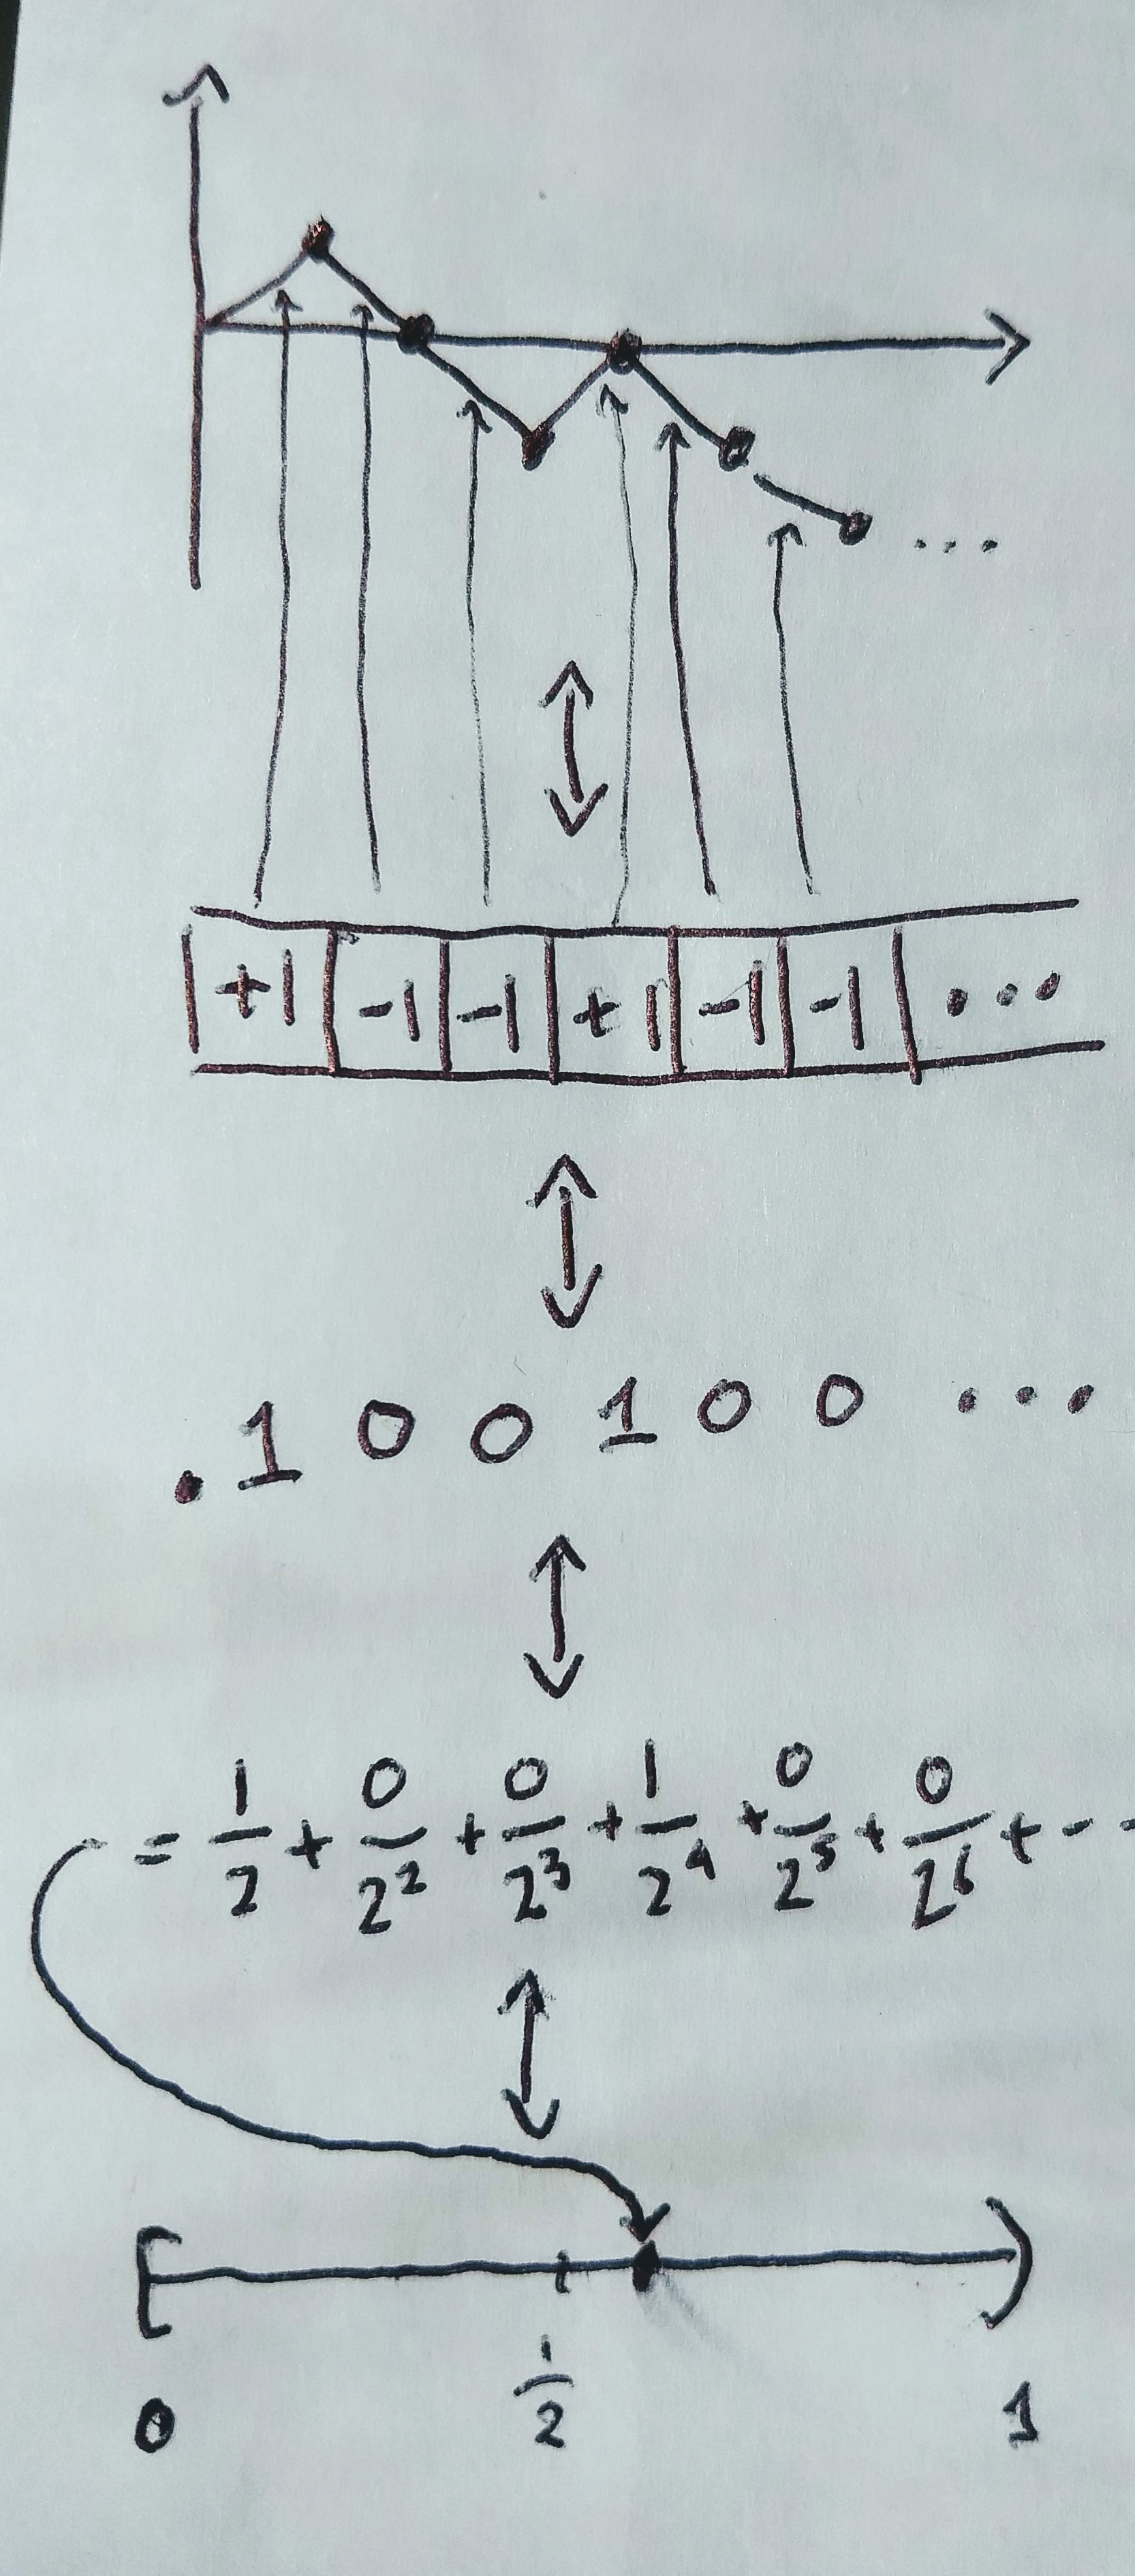 ...
+1 -1 -1 +1 -1 -1 ...
.1 0 0 1 0 0 ...
= 1/2 + 0/2² + 0/2³ + 1/2⁴ + 0/2⁵ + 0/2⁶ + --
[ )
0 1/2 1